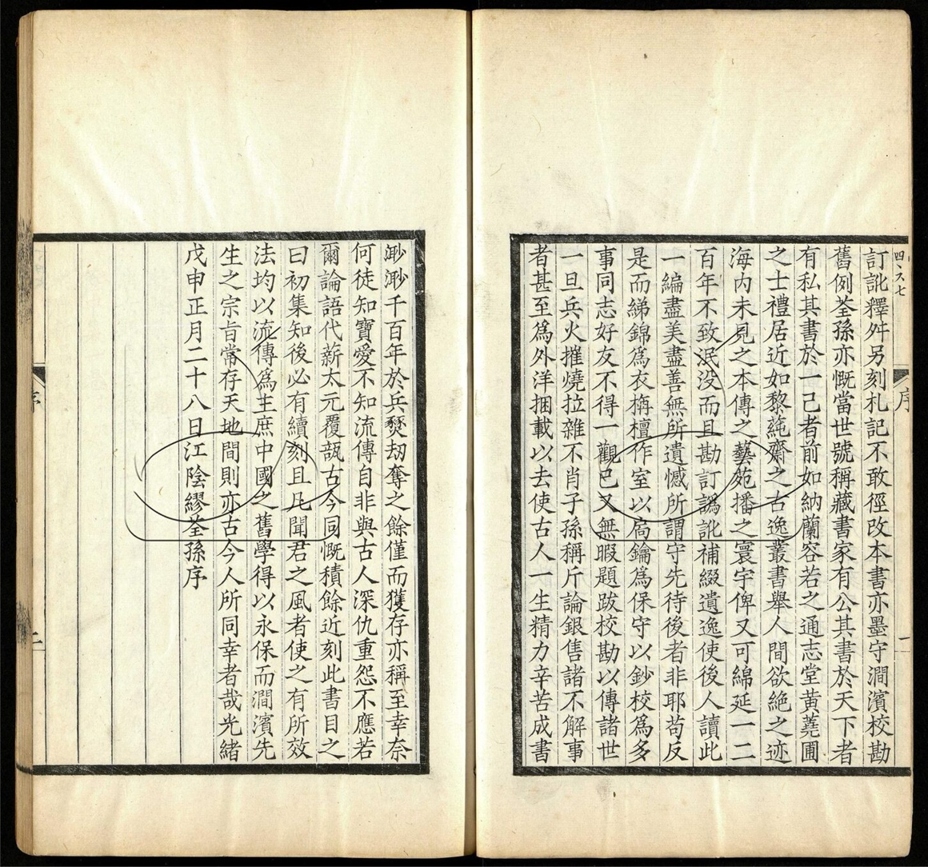 訂訛釋舛另刻札記不敢徑改本書亦墨守澗濱校勘
舊例荃孫亦慨當世號稱藏書家有公其書於天下者
有私其書於一己者前如納蘭容若之通志堂黃蕘圃
之士禮居近如黎蒓齋之古逸叢書舉人間欲絕之迹
海內未見之本傳之藝苑播之寰宇俾又可綿延一二
百年不致泯没而且勘訂譌訛補綴遺逸使後人讀此
一編盡美盡善無所遺憾所謂守先待後者非耶苟反
是而綈錦爲衣栴檀作室以局鑰爲保守以鈔校爲多
事同志好友不得一觀已又無暇題跋校勘以傳諸世
一旦兵火摧燒拉雜不肖子孫稱斤論銀售諸不解事
者甚至爲外洋捆載以去使古人一生精力辛苦成書
序
一
渺渺千百年於兵燹劫奪之餘僅而獲存亦稱至幸奈
何徒知寶愛不知流傳自非與古人深仇重怨不應若
爾論語代薪太元覆瓿古今同慨積餘近刻此書目之
曰初集知後必有續刻且凡聞君之風者使之有所效
法均以流傳爲主庶中國之舊學得以永保而澗濱先
生之宗旨常存天地間則亦古今人所同幸者哉光緒
戊申正月二十八日江陰繆荃孫序
序
二